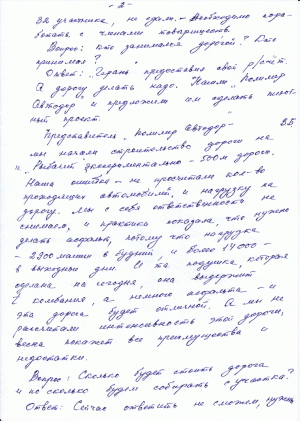 - 2 -
за участника, не сдан. - Необходимо пора-
ботать с членами товариществ.
Вопрос: Кто занимался дорогой? Кто
принимал?
Ответ: "Гарань" предоставила свой р/счёт.
А дорогу делать надо. Наняли "Коммер
Автодор" и предложили им сделать
ный проект.
Представитель "Коммер Автодор" -
мы начали строительство дороги на
"Рыбачит" экспериментально - 500 м дороги.
Наша ошибка - не просчитали кол-во
проходящих автомобилей и нагрузку на
дорогу. Мы с себя ответственности не
снимаем, и практика показала, что нужно
делать асфальт, потому что нагрузка
- 2300 машин в будний, и более 17000 -
в выходные дни. И та подушка, которая
сделана на сегодня, она выдержит
колебания, а немного асфальта - и
эта дорога будет отличной. А мы не
рассчитали интенсивность этой дороги,
весна покажет все преимущества и
недостатки.
Вопрос: Сколько будет стоить дорога
и по сколько будем собирать с участка?
Ответ: Сейчас ответить не сможем, нужен